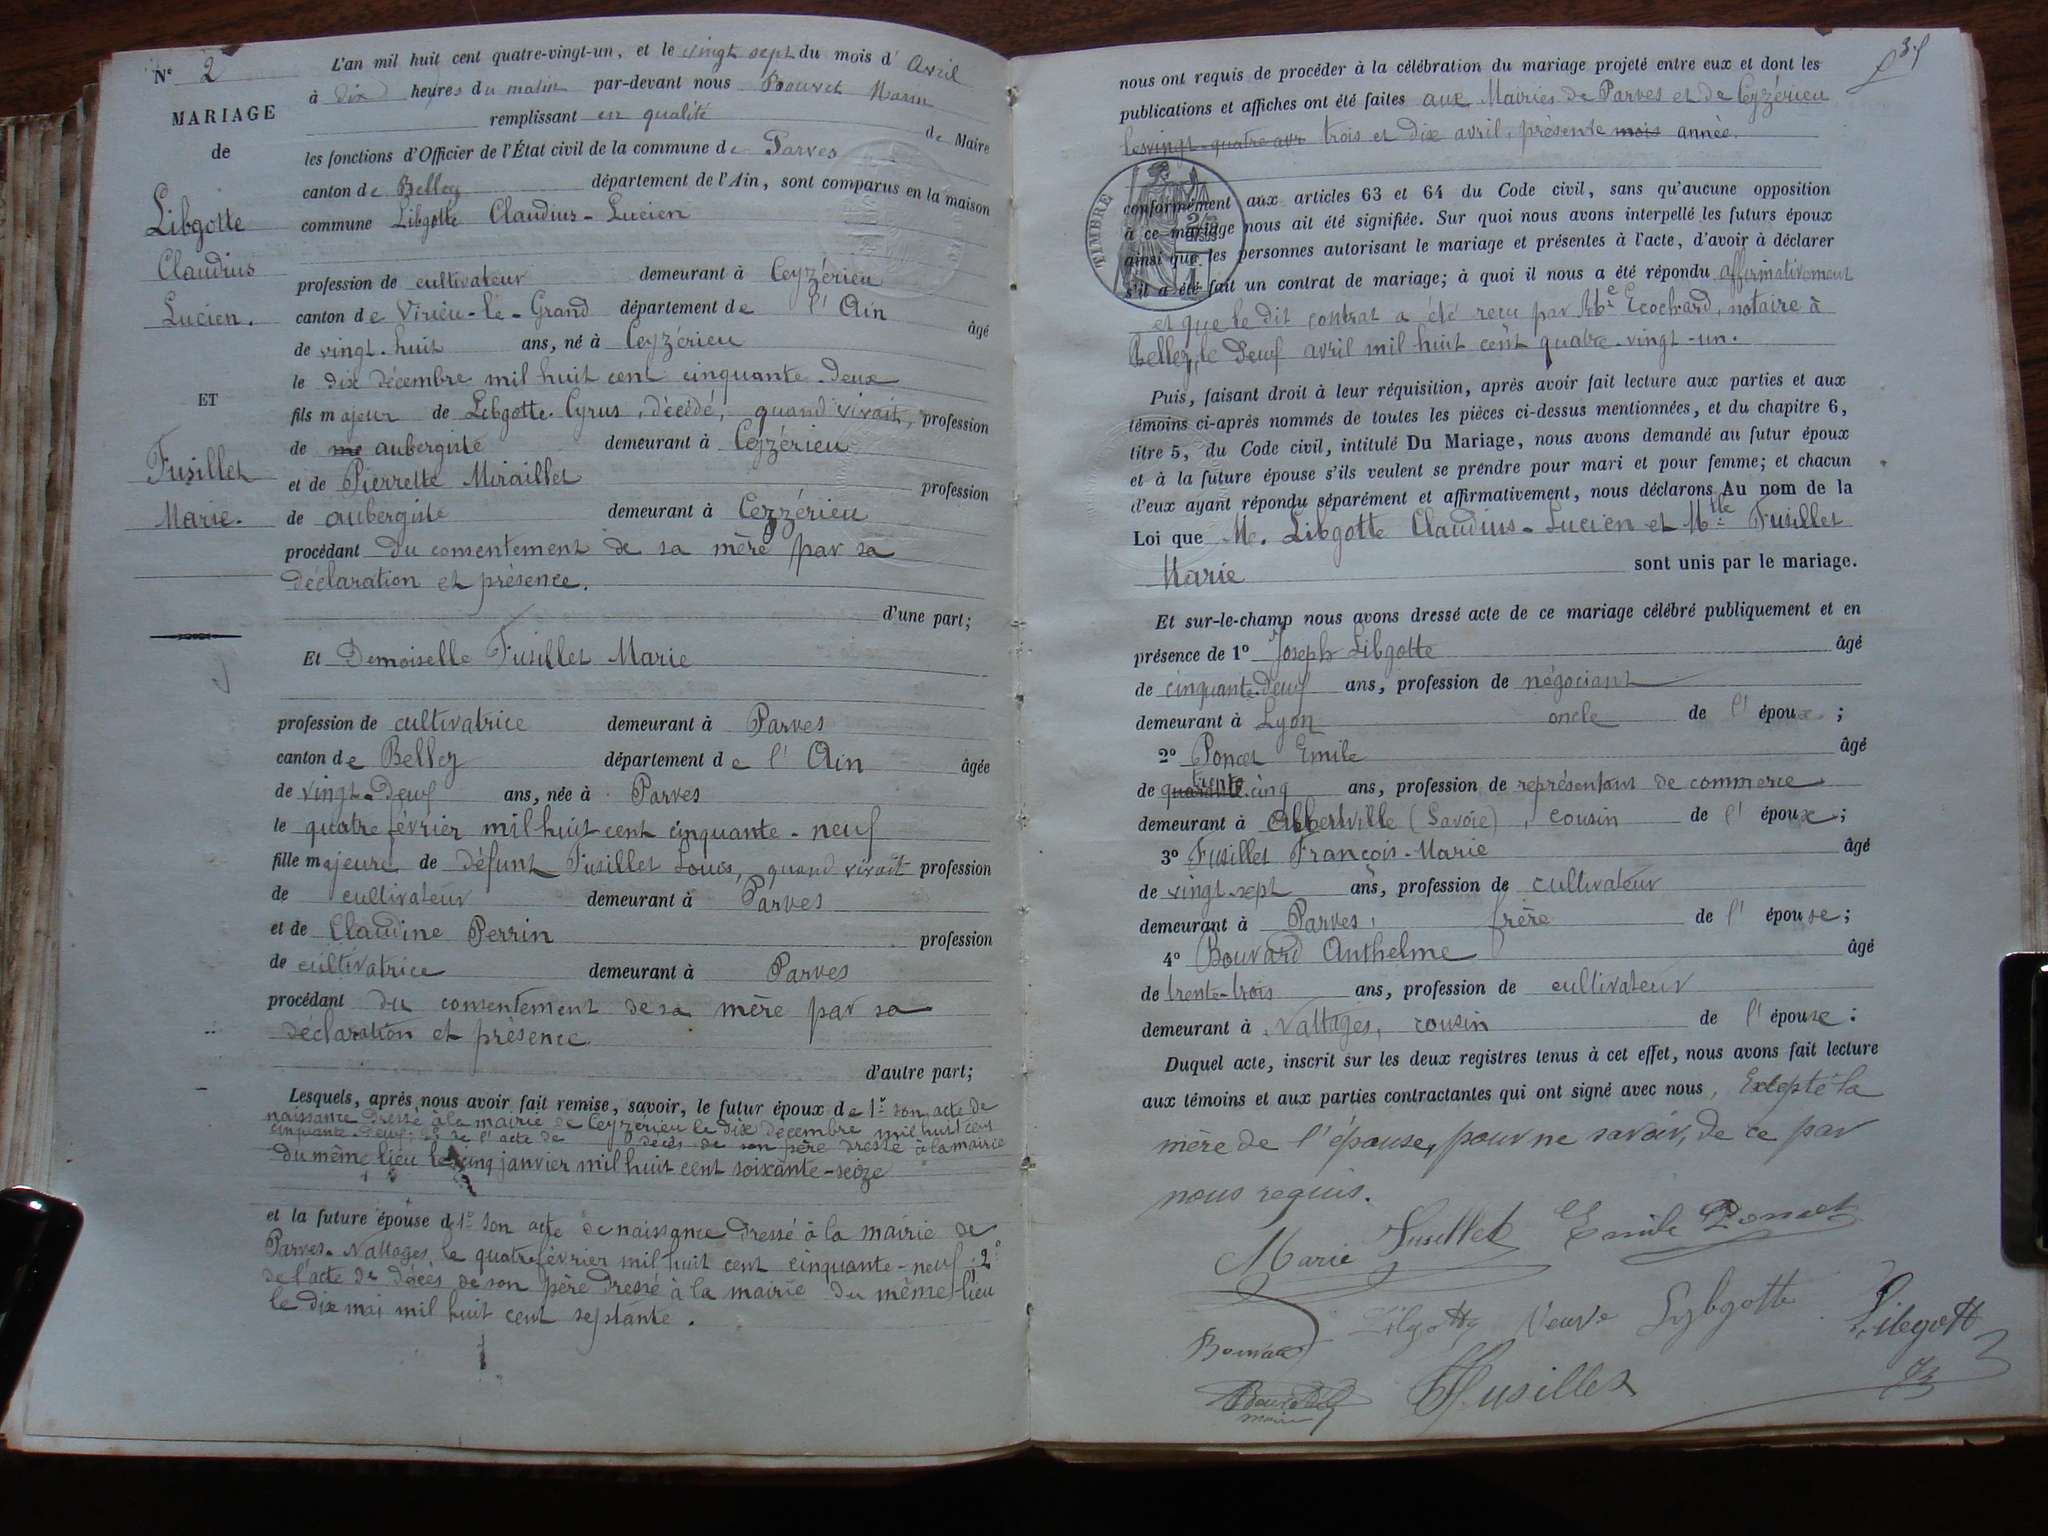 Nº 2
MARIAGE
de
Libgotte
Claudius
Lucien.
ET
Fusillet
Marie.
L'an mil huit cent quatre-vingt-un, et le vingt sept du mois d'Avril
à dix heures du matin par-devant nous Bouvet Marin
remplissant en qualité de Maire
les fonctions d'Officier de l'État civil de la commune de Parves
canton de Belley département de l'Ain, sont comparus en la maison
commune Libgotte Claudius-Lucien
profession de cultivateur demeurant à Ceyzérieu
canton de Virieu-le-Grand département de l'Ain âgé
de vingt-huit ans, né à Ceyzérieu
le dix décembre mil huit cent cinquante-deux
fils majeur de Libgotte Cyrus, décédé, quand vivait, profession
de me aubergiste demeurant à Ceyzérieu
et de Pierrette Miraillet profession
de aubergiste demeurant à Ceyzérieu
procédant du consentement de sa mère par sa
déclaration et présence.
d'une part;
Et Demoiselle Fusillet Marie
profession de cultivatrice demeurant à Parves
canton de Belley département de l'Ain âgée
de vingt-deux ans, née à Parves
le quatre février mil huit cent cinquante-neuf
fille majeure de défunt Fusillet Louis, quand vivait profession
de cultivateur demeurant à Parves
et de Claudine Perrin profession
de cultivatrice demeurant à Parves
procédant du consentement de sa mère par sa
déclaration et présence.
d'autre part;
Lesquels, après nous avoir fait remise, savoir, le futur époux de 1º son acte de
naissance dressé à la mairie de Ceyzérieu le dix décembre mil huit cent
cinquante-deux; 2º de l'acte de décès de son père dressé à la mairie
du même lieu le cinq janvier mil huit cent soixante-seize
et la future épouse de 1º son acte de naissance dressé à la mairie de
Parves-Nattages, le quatre février mil huit cent cinquante-neuf; 2º
de l'acte de décès de son père dressé à la mairie du même lieu
le dix mai mil huit cent septante.
nous ont requis de procéder à la célébration du mariage projeté entre eux et dont les
publications et affiches ont été faites aux Mairies de Parves et de Ceyzérieu
les vingt-quatre avr trois et dix avril, présente mois année.
TIMBRE
conformément aux articles 63 et 64 du Code civil, sans qu'aucune opposition
à ce mariage nous ait été signifiée. Sur quoi nous avons interpellé les futurs époux
ainsi que les personnes autorisant le mariage et présentes à l'acte, d'avoir à déclarer
s'il a été fait un contrat de mariage; à quoi il nous a été répondu affirmativement
et que le dit contrat a été reçu par Me Ecochard, notaire à
Belley, le neuf avril mil huit cent quatre-vingt-un.
Puis, faisant droit à leur réquisition, après avoir fait lecture aux parties et aux
témoins ci-après nommés de toutes les pièces ci-dessus mentionnées, et du chapitre 6,
titre 5, du Code civil, intitulé Du Mariage, nous avons demandé au futur époux
et à la future épouse s'ils veulent se prendre pour mari et pour femme; et chacun
d'eux ayant répondu séparément et affirmativement, nous déclarons Au nom de la
Loi que M. Libgotte Claudius-Lucien et Mlle Fusillet
Marie sont unis par le mariage.
Et sur-le-champ nous avons dressé acte de ce mariage célébré publiquement et en
présence de 1º Joseph Libgotte âgé
de cinquante-deux ans, profession de négociant
demeurant à Lyon oncle de l'époux;
2º Poncet Emile âgé
de quarante trente-cinq ans, profession de représentant de commerce
demeurant à Albertville (Savoie), cousin de l'époux;
3º Fusillet François-Marie âgé
de vingt-sept ans, profession de cultivateur
demeurant à Parves, frère de l'épouse;
4º Bouvard Anthelme âgé
de trente-trois ans, profession de cultivateur
demeurant à Nattages, cousin de l'épouse:
Duquel acte, inscrit sur les deux registres tenus à cet effet, nous avons fait lecture
aux témoins et aux parties contractantes qui ont signé avec nous, Excepté la
mère de l'épouse, pour ne savoir, de ce par
nous requis.
Marie Fusillet Emile Poncet
Bouvard Libgotte Veuve Lybgotte Libgott
maire Fusillet